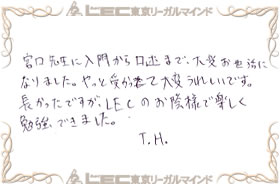 LEC東京リーガルマインド
宮口先生に入門から口述まで、大変お世話に
なりました。やっと受かって大変うれしいです。
長かったですが、LECのお陰様で楽しく
勉強できました。
T.H.
LEC東京リーガルマインド